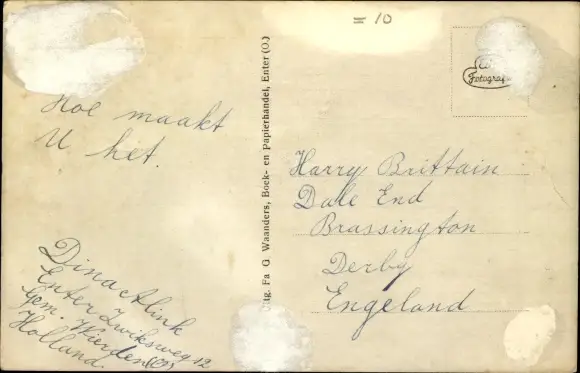 = 10
Fotografie
Hoe maakt
U het.
Uitg. Fa G. Waanders, Boek- en Papierhandel, Enter (O.)
Harry Brittain
Dale End
Brassington
Derby
Engeland
Dina Altink
Enter Zwiksweg 12
Gem. Wierden (O)
Holland.